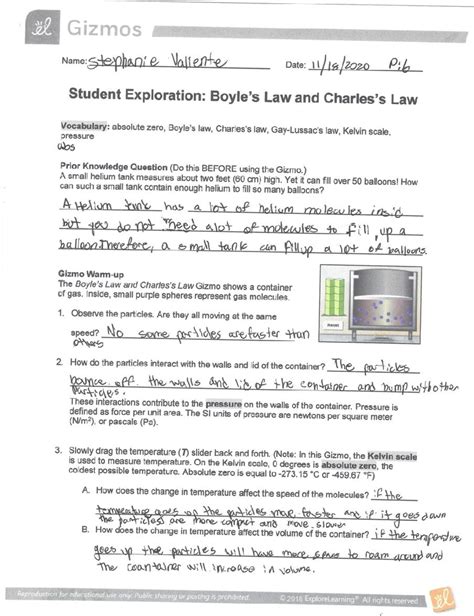 el Gizmos
Name: Stephanie Valiente Date: 11/18/2020 P.6
Student Exploration: Boyle's Law and Charles's Law
Vocabulary: absolute zero, Boyle's law, Charles's law, Gay-Lussac's law, Kelvin scale,
pressure
Prior Knowledge Question (Do this BEFORE using the Gizmo.)
A small helium tank measures about two feet (60 cm) high. Yet it can fill over 50 balloons! How
can such a small tank contain enough helium to fill so many balloons?
A Helium tank has a lot of helium molecules insid
but you do not need alot of molecules to fill up a
balloon. Therefore, a small tank can fill up a lot of balloons.
Gizmo Warm-up
The Boyle's Law and Charles's Law Gizmo shows a container
of gas. Inside, small purple spheres represent gas molecules.
1. Observe the particles. Are they all moving at the same
speed? No some particles are faster than
others
2. How do the particles interact with the walls and lid of the container? The particles
bounce off the walls and lid of the container and bump with other
Particles.
These interactions contribute to the pressure on the walls of the container. Pressure is
defined as force per unit area. The SI units of pressure are newtons per square meter
(N/m²), or pascals (Pa).
3. Slowly drag the temperature (T) slider back and forth. (Note: In this Gizmo, the Kelvin scale
is used to measure temperature. On the Kelvin scale, 0 degrees is absolute zero, the
coldest possible temperature. Absolute zero is equal to -273.15 °C or -459.67 °F)
A. How does the change in temperature affect the speed of the molecules? if the
temperature goes up the particles move faster and if it goes down
the particles are more compact and move slower
B. How does the change in temperature affect the volume of the container? if the temperature
goes up the particles will have more space to roam around and
The coantainer will increase in volume.
Reproduction for educational use only. Public sharing or posting is prohibited. © 2018 ExploreLearning® All rights reserved